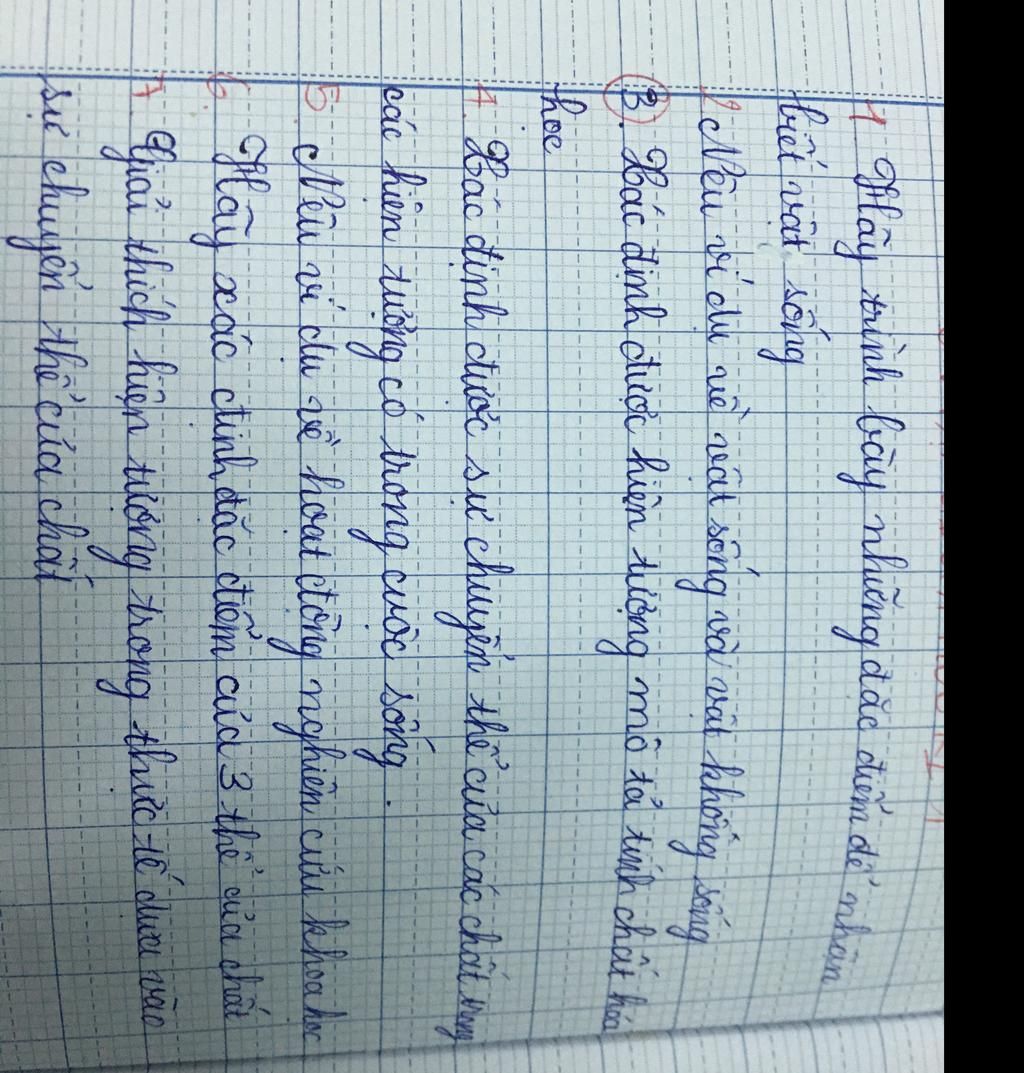 1. Hãy trình bày những đặc điểm để nhận
biết vật sống
2. Nêu ví dụ về vật sống và vật không sống
3. Xác định được hiện tượng mô tả tính chất hóa
học
4. Xác định được sự chuyển thể của các chất trong
các hiện tượng có trong cuộc sống.
5. Nêu ví dụ về hoạt động nghiên cứu khoa học
6. Hãy xác định đặc điểm của 3 thể của chất
7. Giải thích hiện tượng trong thực tế dựa vào
sự chuyển thể của chất